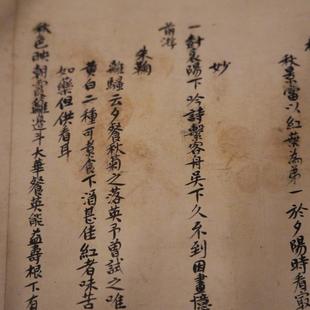 秋景當以紅葉為第一於夕陽時看最
妙
一村襄陽下吟詩繫客舟吳下久不到因畫憶
前游
朱鞠
離騷云夕餐秋菊之落英予曾試之唯
黃白二種可煮食下酒甚佳紅者味苦
如藥但供看耳
秋色映朝霞離邊斗大華餐英能益壽根下有